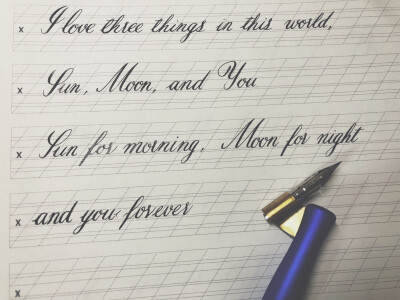 x I love three things in this world,
x Sun, Moon, and You
x Sun for morning, Moon for night
x and you forever
x